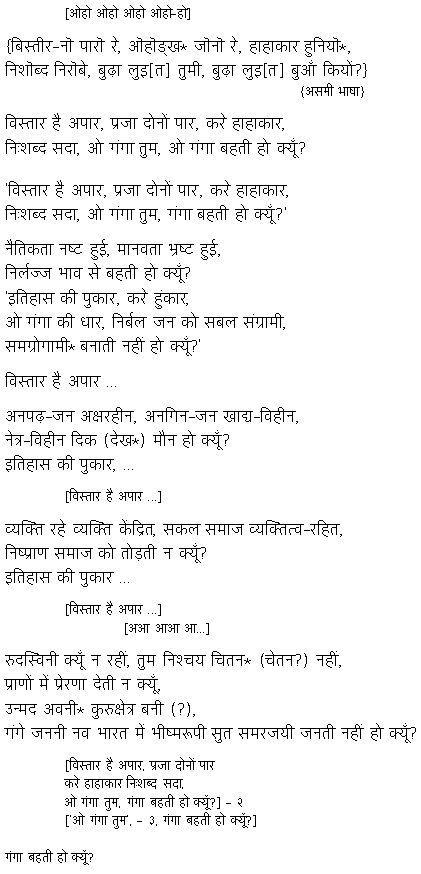 [ओहो ओहो ओहो ओहो-हो]
{बिस्तीर-नॊ पारॊ रे, ऒहॊङ्ख* जॊनॊ रे, हाहाकार हुनियॊ*,
निशॊब्द निरॊबे, बुढ़ा लुइ[त] तुमी, बुढ़ा लुइ[त] बुआँ कियों?}
{असमी भाषा}
विस्तार है अपार, प्रजा दोनों पार, करे हाहाकार,
निःशब्द सदा, ओ गंगा तुम, ओ गंगा बहती हो क्यूँ?
'विस्तार है अपार, प्रजा दोनों पार, करे हाहाकार,
निःशब्द सदा, ओ गंगा तुम, गंगा बहती हो क्यूँ?'
नैतिकता नष्ट हुई, मानवता भ्रष्ट हुई,
निर्लज्ज भाव से बहती हो क्यूँ?
'इतिहास की पुकार, करे हुंकार,
ओ गंगा की धार, निर्बल जन को सबल संग्रामी,
समग्रोगामी* बनाती नहीं हो क्यूँ?'
विस्तार है अपार ...
अनपढ़-जन अक्षरहीन, अनगिन-जन खाद्य-विहीन,
नेत्र-विहीन दिक (देख*) मौन हो क्यूँ?
इतिहास की पुकार, ...
[विस्तार है अपार ...]
व्यक्ति रहे व्यक्ति केंद्रित, सकल समाज व्यक्तित्व-रहित,
निष्प्राण समाज को तोड़ती न क्यूँ?
इतिहास की पुकार ...
[विस्तार है अपार ...]
[अआ आआ आ...]
रुदस्विनी क्यूँ न रहीं, तुम निश्चय चितन* (चेतन?) नहीं,
प्राणों में प्रेरणा देती न क्यूँ,
उन्मद अवनी* कुरुक्षेत्र बनी (?),
गंगे जननी नव भारत में भीष्मरूपी सुत समरजयी जनती नहीं हो क्यूँ?
[विस्तार है अपार, प्रजा दोनों पार
करे हाहाकार निःशब्द सदा,
ओ गंगा तुम, गंगा बहती हो क्यूँ?] - २
['ओ गंगा तुम', - ३, गंगा बहती हो क्यूँ?]
गंगा बहती हो क्यूँ?